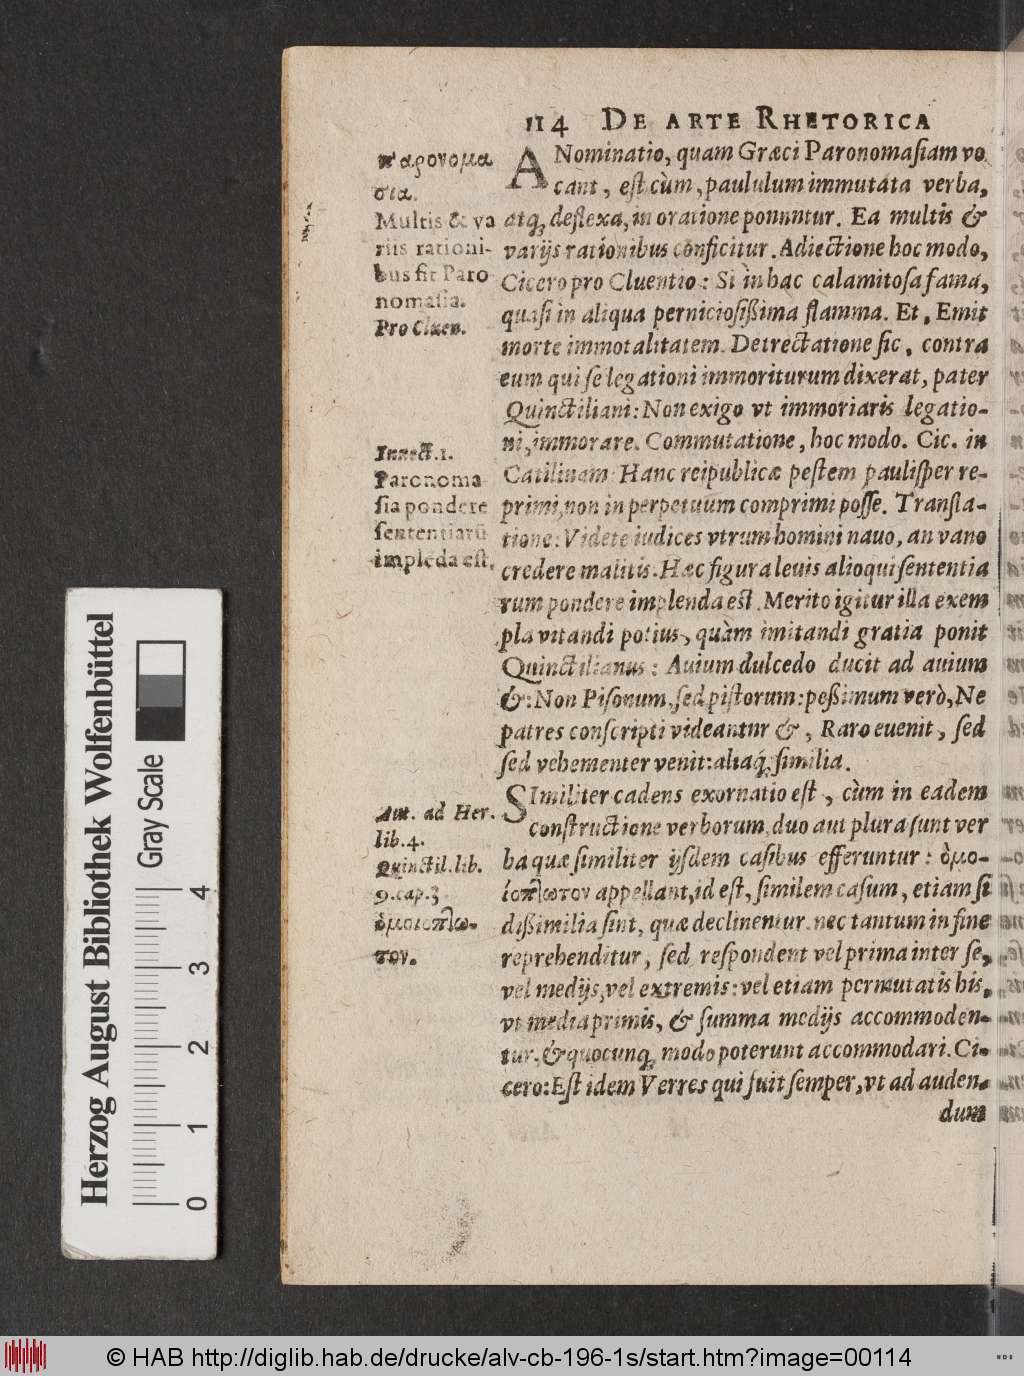 114 DE ARTE RHETORICA
παρονομα
σια.
Multis & va
riis rationi-
bus fit Paro
nomasia.
Pro Cluen.
Inuect.1.
Paronoma
sia pondere
sententiarū
implēda est.
Aut. ad Her.
lib.4.
Quinctil.lib.
9.cap.3
ὁμοιοπτω-
τον.
ANominatio, quam Græci Paronomasiam vo
cant, est cùm, paululum immutata verba,
atq; deflexa, in oratione ponuntur. Ea multis &
varijs rationibus conficitur. Adiectione hoc modo,
Cicero pro Cluentio: Si in hac calamitosa fama,
quasi in aliqua perniciosißima flamma. Et, Emit
morte immotalitatem. Detrectatione sic, contra
eum qui se legationi immoriturum dixerat, pater
Quinctiliani: Non exigo vt immoriaris legatio-
ni, immorare. Commutatione, hoc modo. Cic. in
Catilinam: Hanc reipublicæ pestem paulisper re-
primi, non in perpetuum comprimi posse. Transla-
tione: Videte iudices vtrum homini nauo, an vano
credere malitis. Hæc figura leuis alioqui sententia
rum pondere implenda est. Merito igitur illa exem
pla vitandi potius, quàm imitandi gratia ponit
Quinctilianus: Auium dulcedo ducit ad auium
&: Non Pisonum, sed pistorum: peßimum verò, Ne
patres conscripti videantur &, Raro euenit, sed
sed vehementer venit: aliaq́; similia.
SImiliter cadens exornatio est, cùm in eadem
constructione verborum, duo aut plura sunt ver
ba quæ similiter ijsdem casibus efferuntur: ὁμο-
ιόπτωτον appellant, id est, similem casum, etiam si
dißimilia sint, quæ declinentur. nec tantum in fine
reprehenditur, sed respondent vel prima inter se,
vel medijs, vel extremis: vel etiam permutatis his,
vt media primis, & summa medijs accommoden-
tur. & quocunq; modo poterunt accommodari. Ci-
cero: Est idem Verres qui fuit semper, vt ad auden-
dum
Herzog August Bibliothek Wolfenbüttel
Gray Scale
0 1 2 3 4
© HAB http://diglib.hab.de/drucke/alv-cb-196-1s/start.htm?image=00114